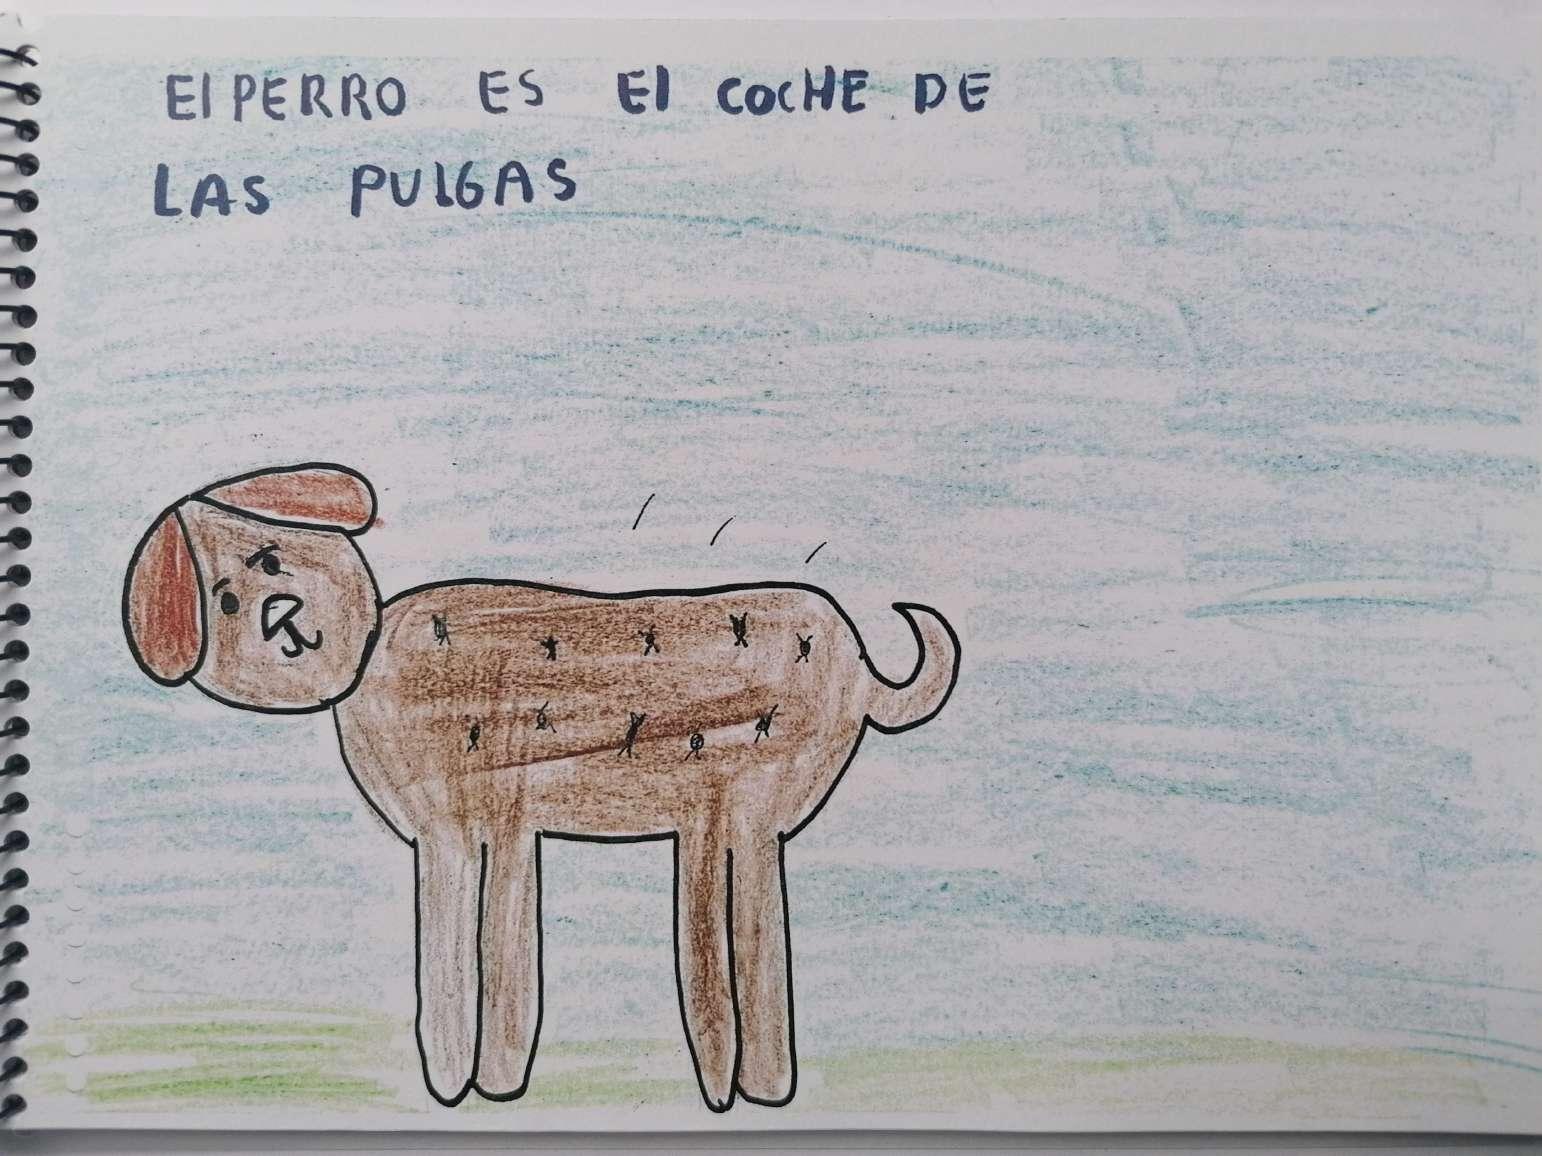 El PERRO ES El COCHE DE
LAS PULGAS